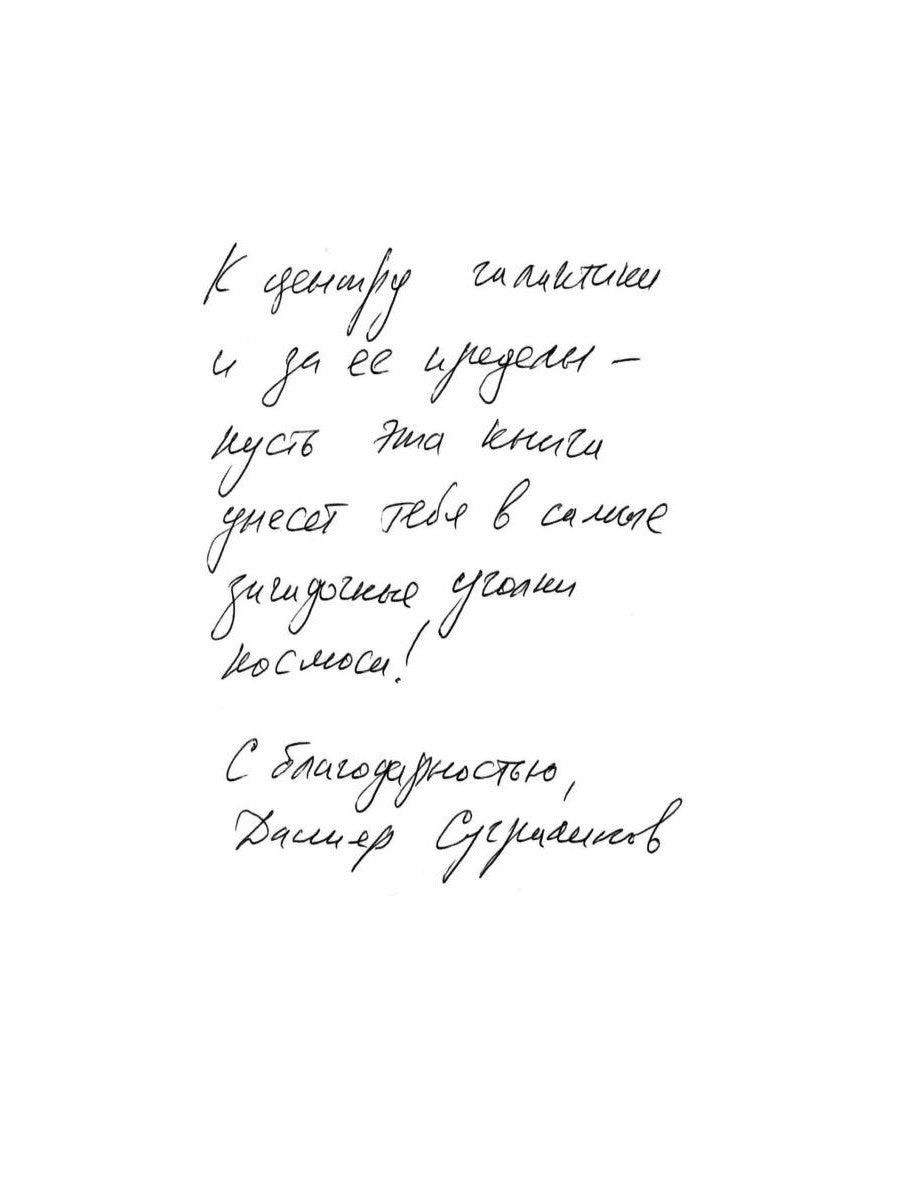 К центру галактики
и за ее пределы –
пусть эта книга
унесет тебя в самые
загадочные уголки
космоса!
С благодарностью,
Дамир